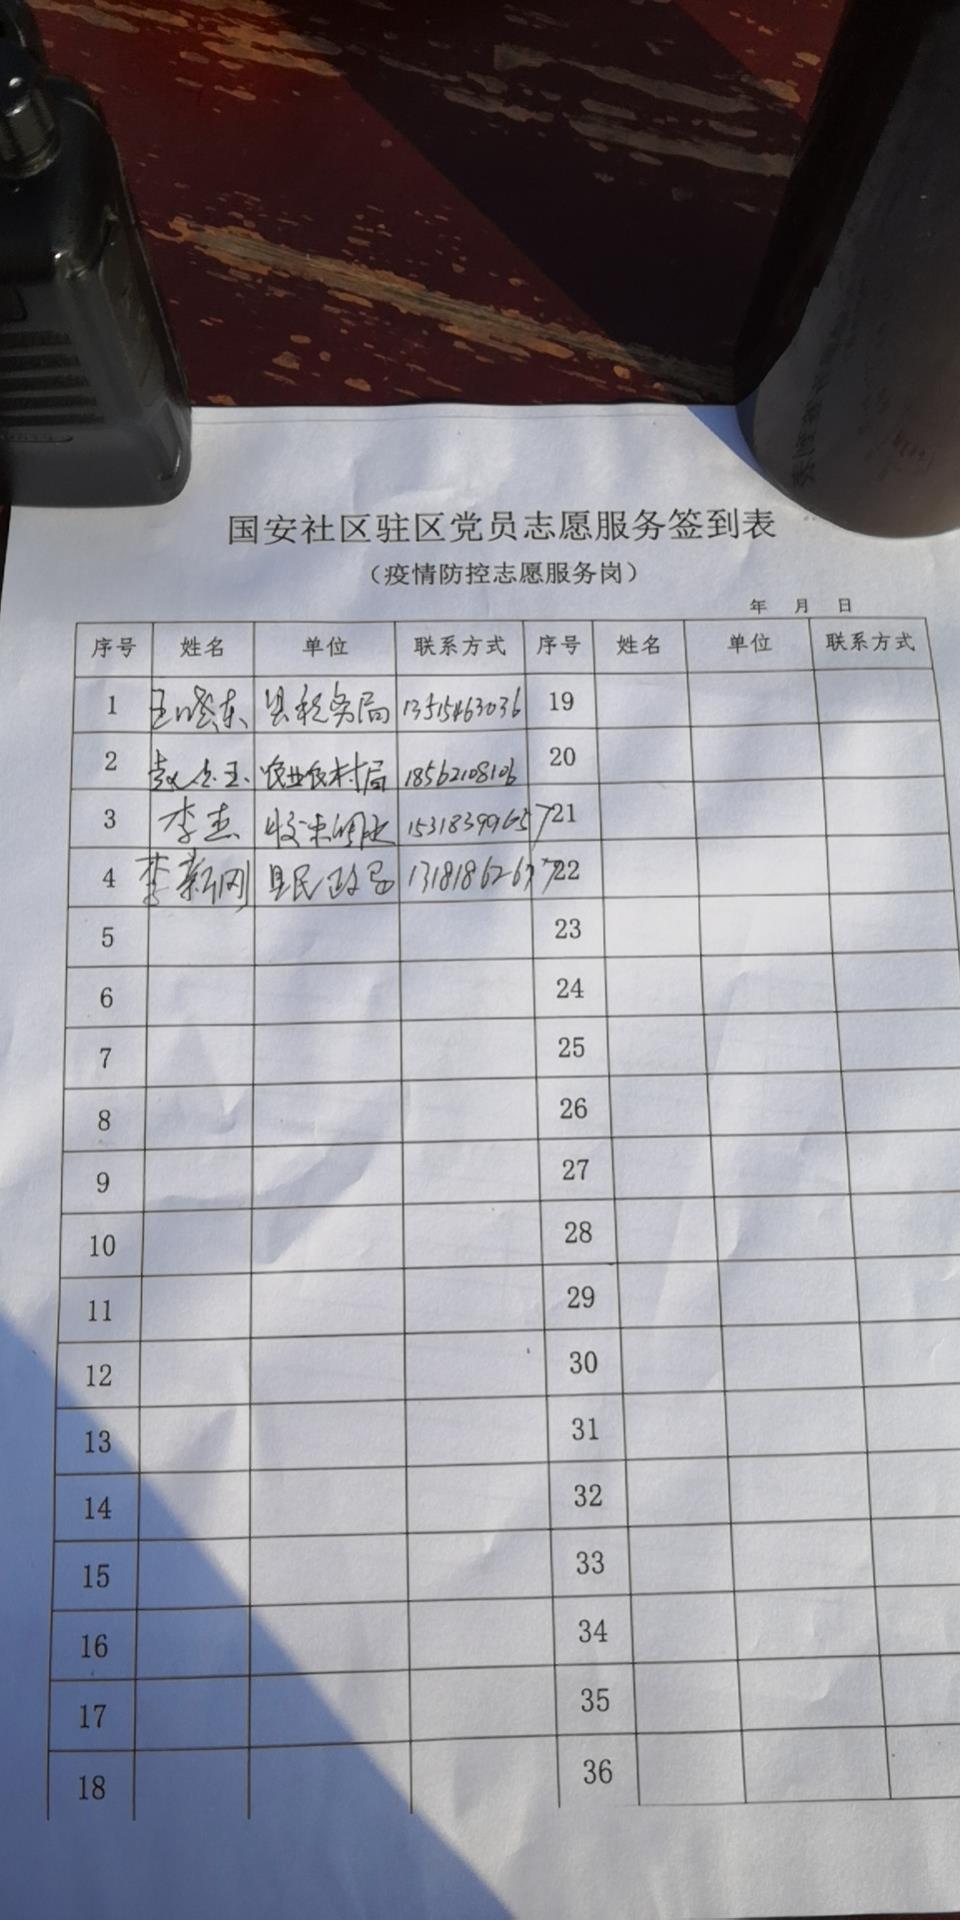 国安社区驻区党员志愿服务签到表
（疫情防控志愿服务岗）
年 月 日
序号 姓名 单位 联系方式 序号 姓名 单位 联系方式
1 王晓东 县税务局 13515463036 19
2 农业农村局 18562108106 20
3 李杰 21
4 李新刚 县民政局 22
5 23
6 24
7 25
8 26
9 27
10 28
11 29
12 30
13 31
14 32
15 33
16 34
17 35
18 36